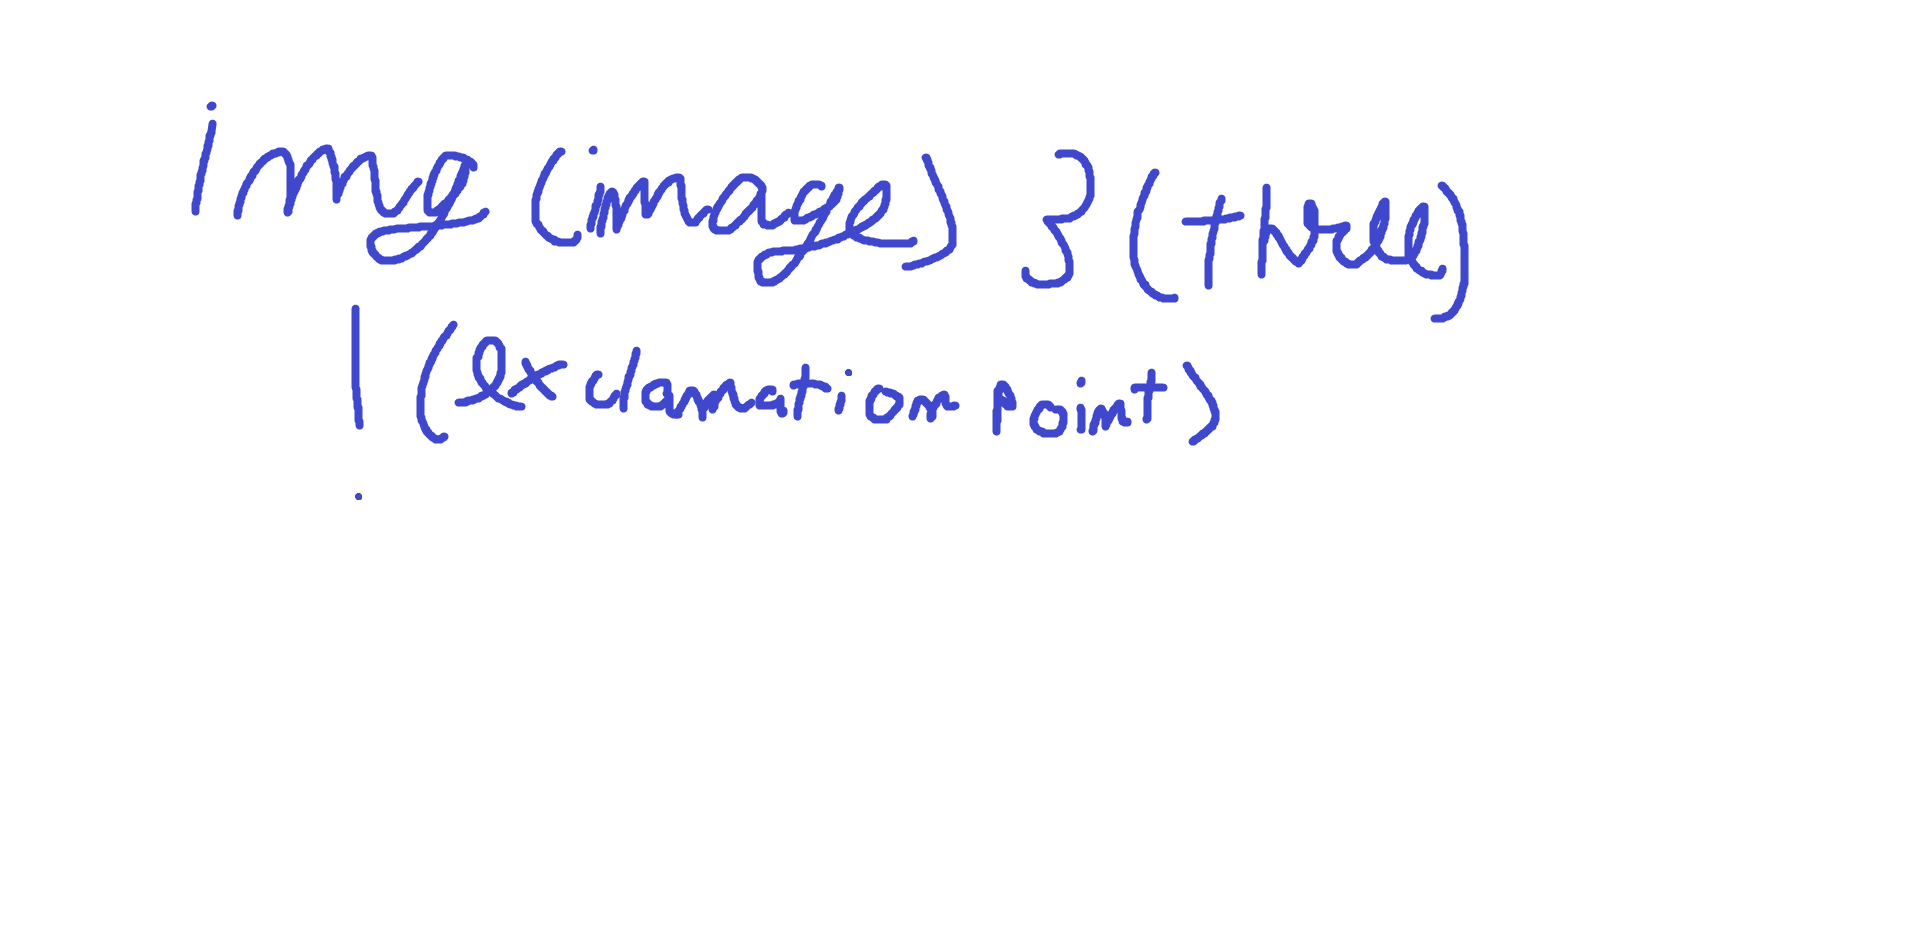 img (image) 3 (three)
! (exclamation point)